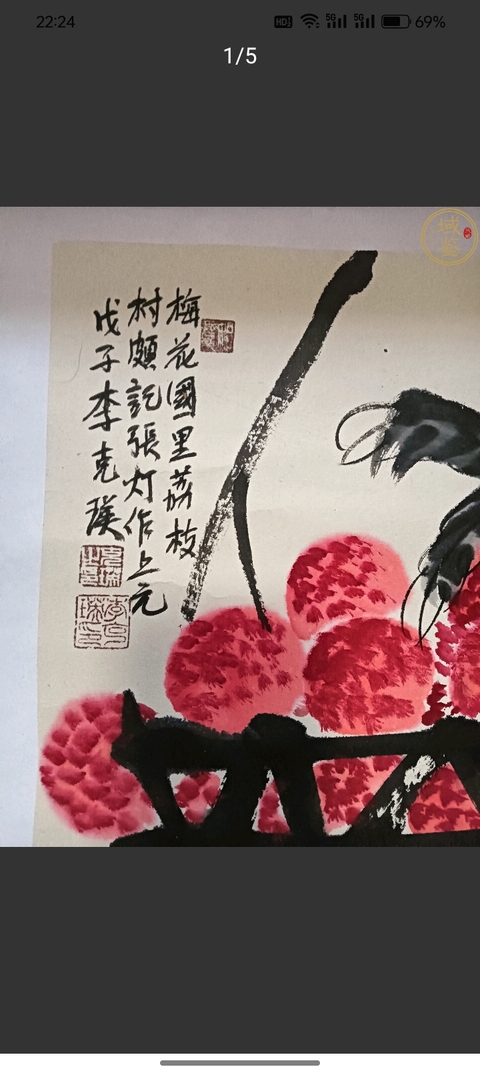 22:24
HD
5G
5G
69%
1/5
梅花國里荔枝
村頗記張灯作上元
戊子李克瑛